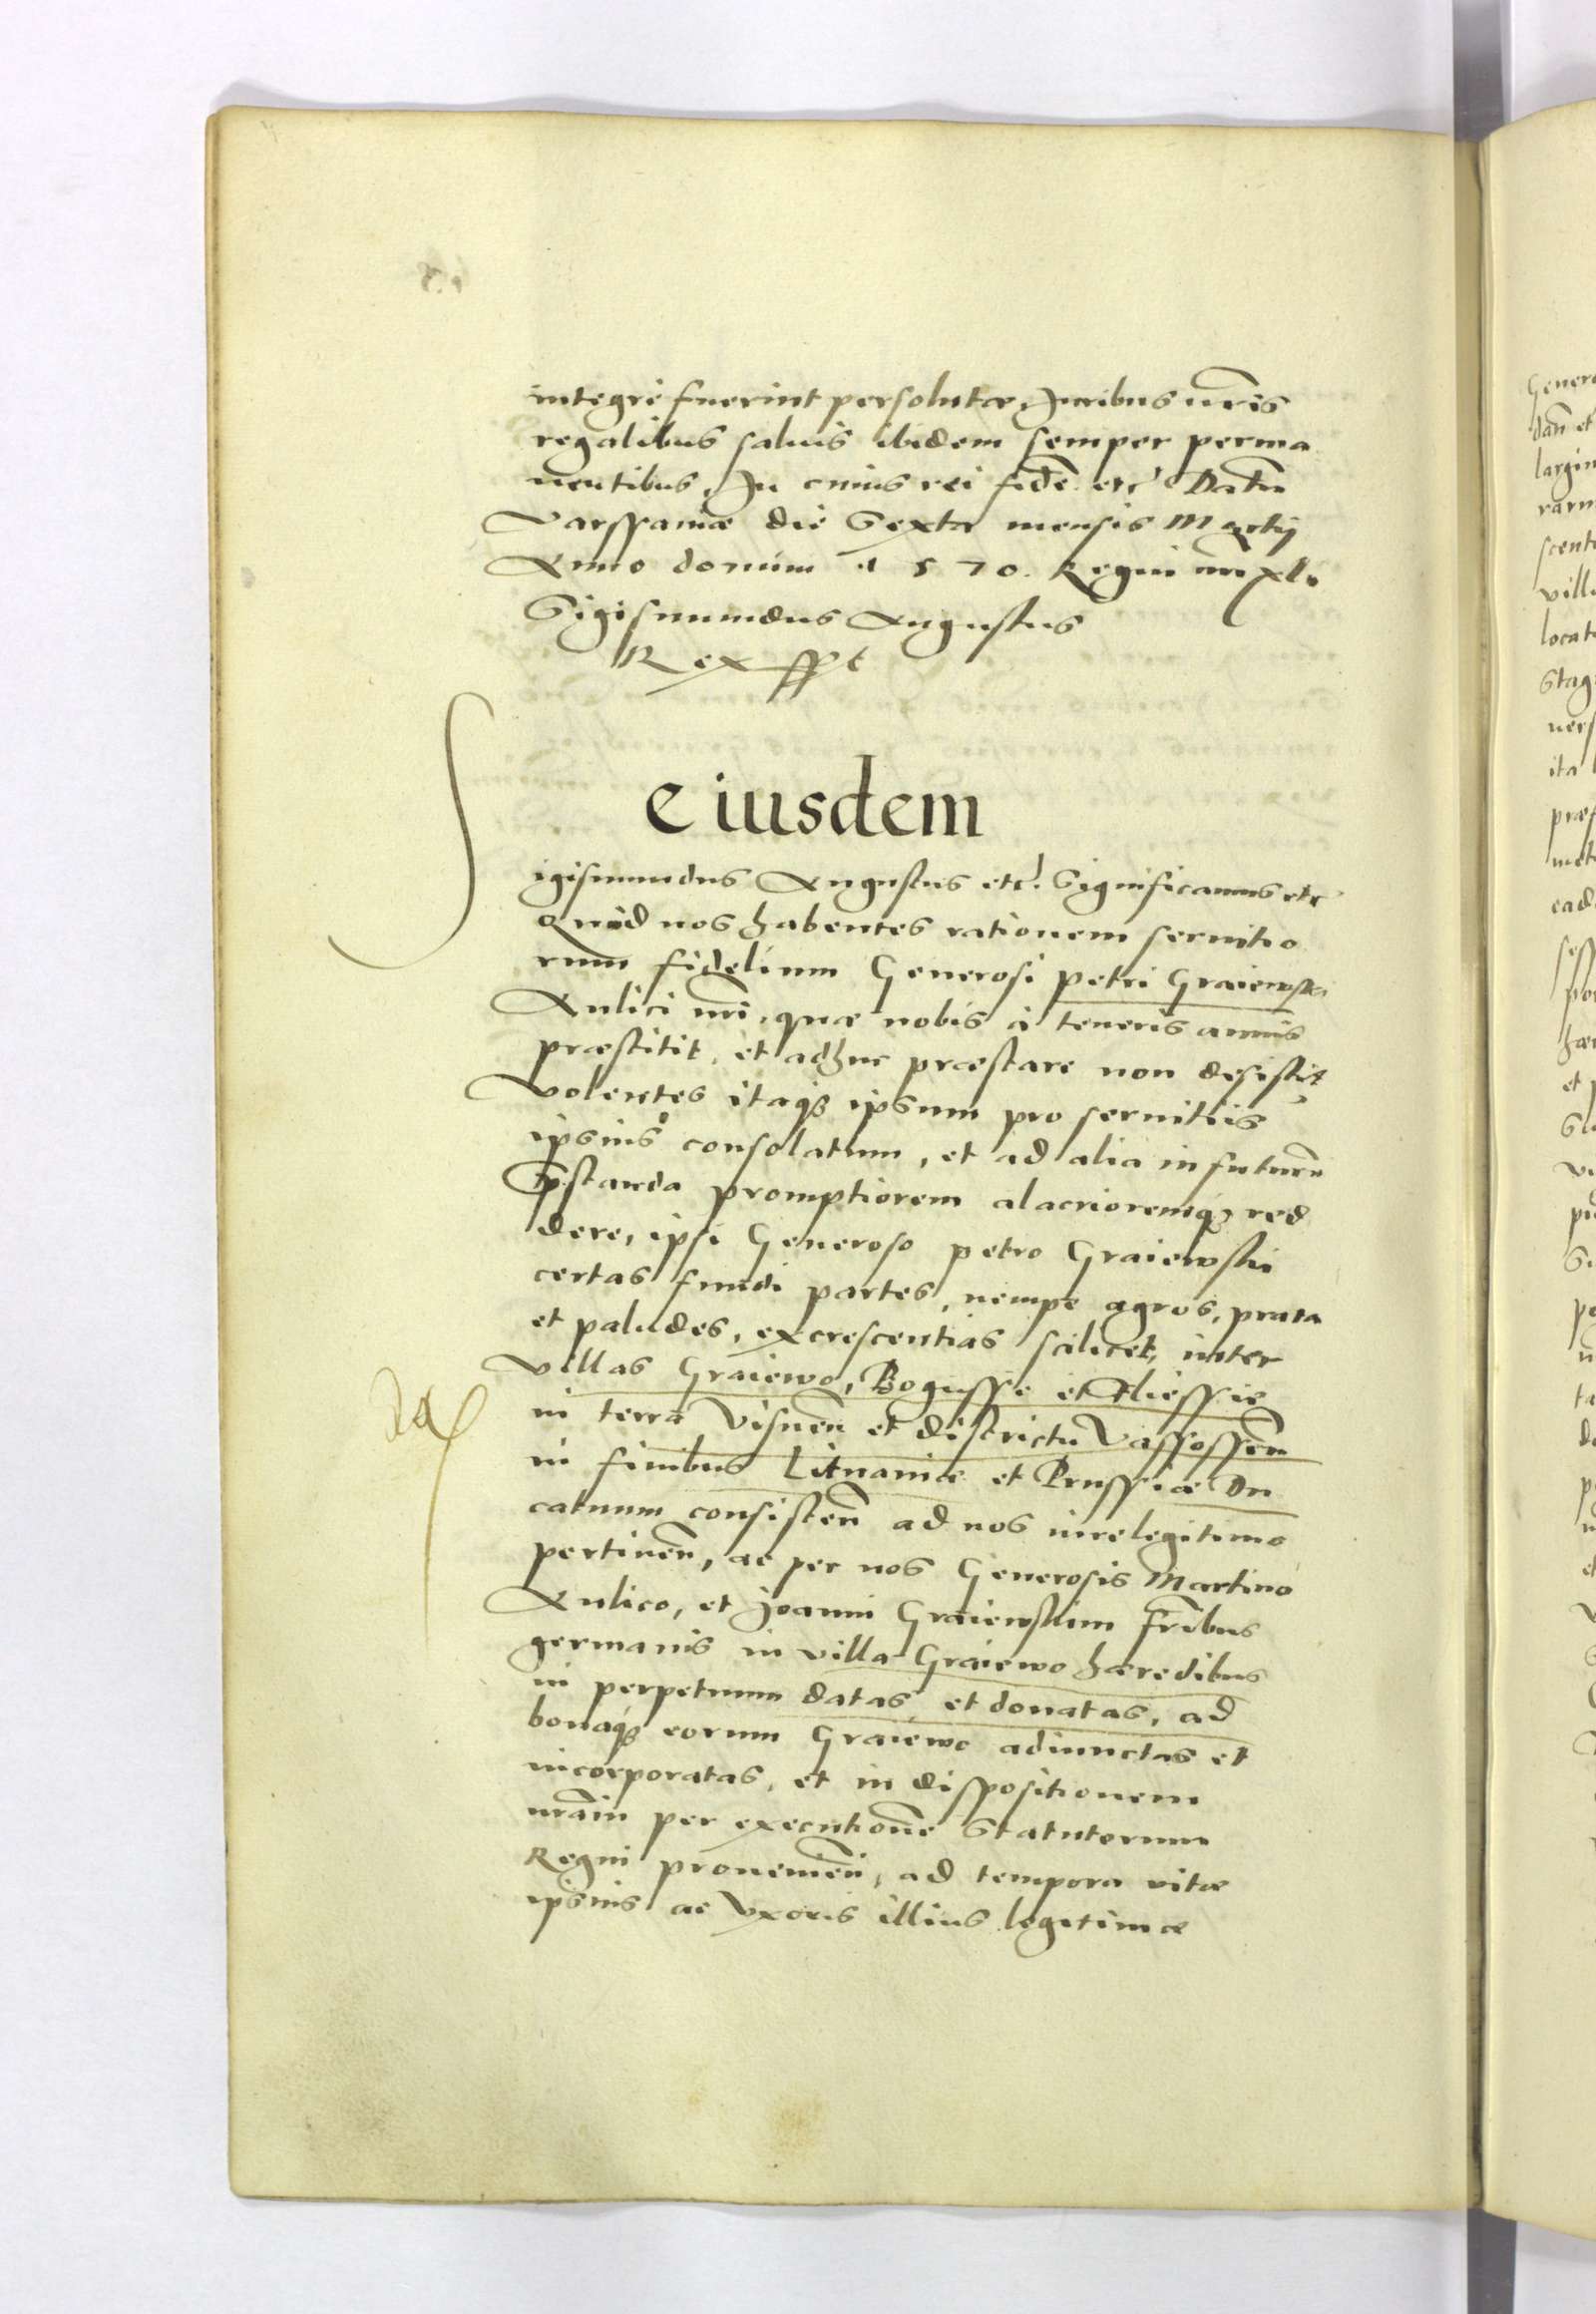 integre fuerint persolutæ, Juribus nr̃is
regalibus saluis ibidem semper perma
nentibus, In cuius rei fidẽ etc̃ Datũ
Varssauiæ die Sexta mensis Martij
Anno domini 1570. Regni nr̃i xli
Sigismundus Augustus
Rex sspt
Eiusdem
Sigismundus Augustus etc̃. Significamus etc
Quod nos habentes rationem seruitio
rum fidelium Generosi Petri Graiewski
Aulici nr̃i, quæ nobis à teneris annis
præstitit, et adhuc præstare non desistit
Volentes itaqꝫ ipsum pro seruitiis
ipsius consolatum, et ad alia in futurũ
p̃standa promptiorem alacrioremqꝫ red
dere, ipsi Generoso Petro Graiewski
certas fundi partes, nempe agros, prata
et paludes, excrescentias scilicet, inter
villas Graiewo, Bogusse et Fliessie
in terra Visneñ et districtu Vassosseñ
in finibus Lituaniæ et Prussiæ Du
catuum consisteñ ad nos iure legitimo
pertineñ, ac per nos Generosis Martino
Aulico, et Joanni Graiewskim fr̃ibus
germanis in villa Graiewo hæredibus
in perpetuum datas et donatas, ad
bonaqꝫ eorum Graiewo adiunctas et
incorporatas, et in dispositionem
nr̃am per executionẽ Statutorum
Regni proueuieñ, ad tempora vitæ
ipsius ac Vxoris illius legitimæ